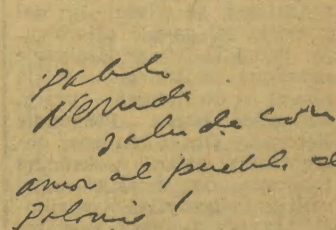 Pablo
Neruda
saluda con
amor al pueblo de
Polonia!